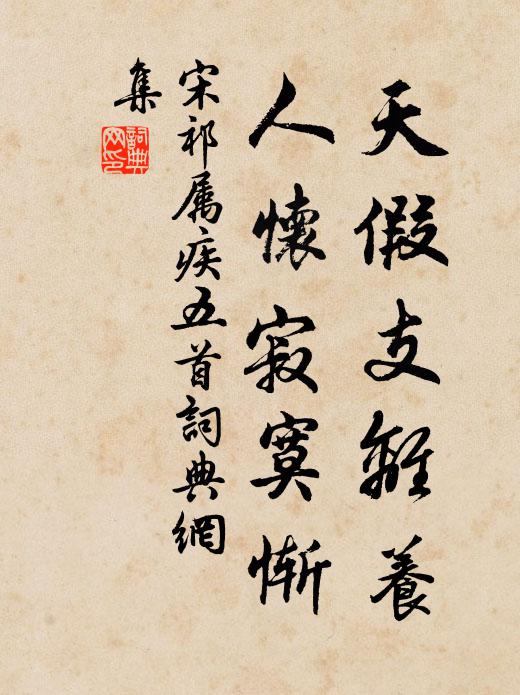 天假支離養
人懷寂寞慚
宋祁属疾五首詞典網
集
詞典
网印